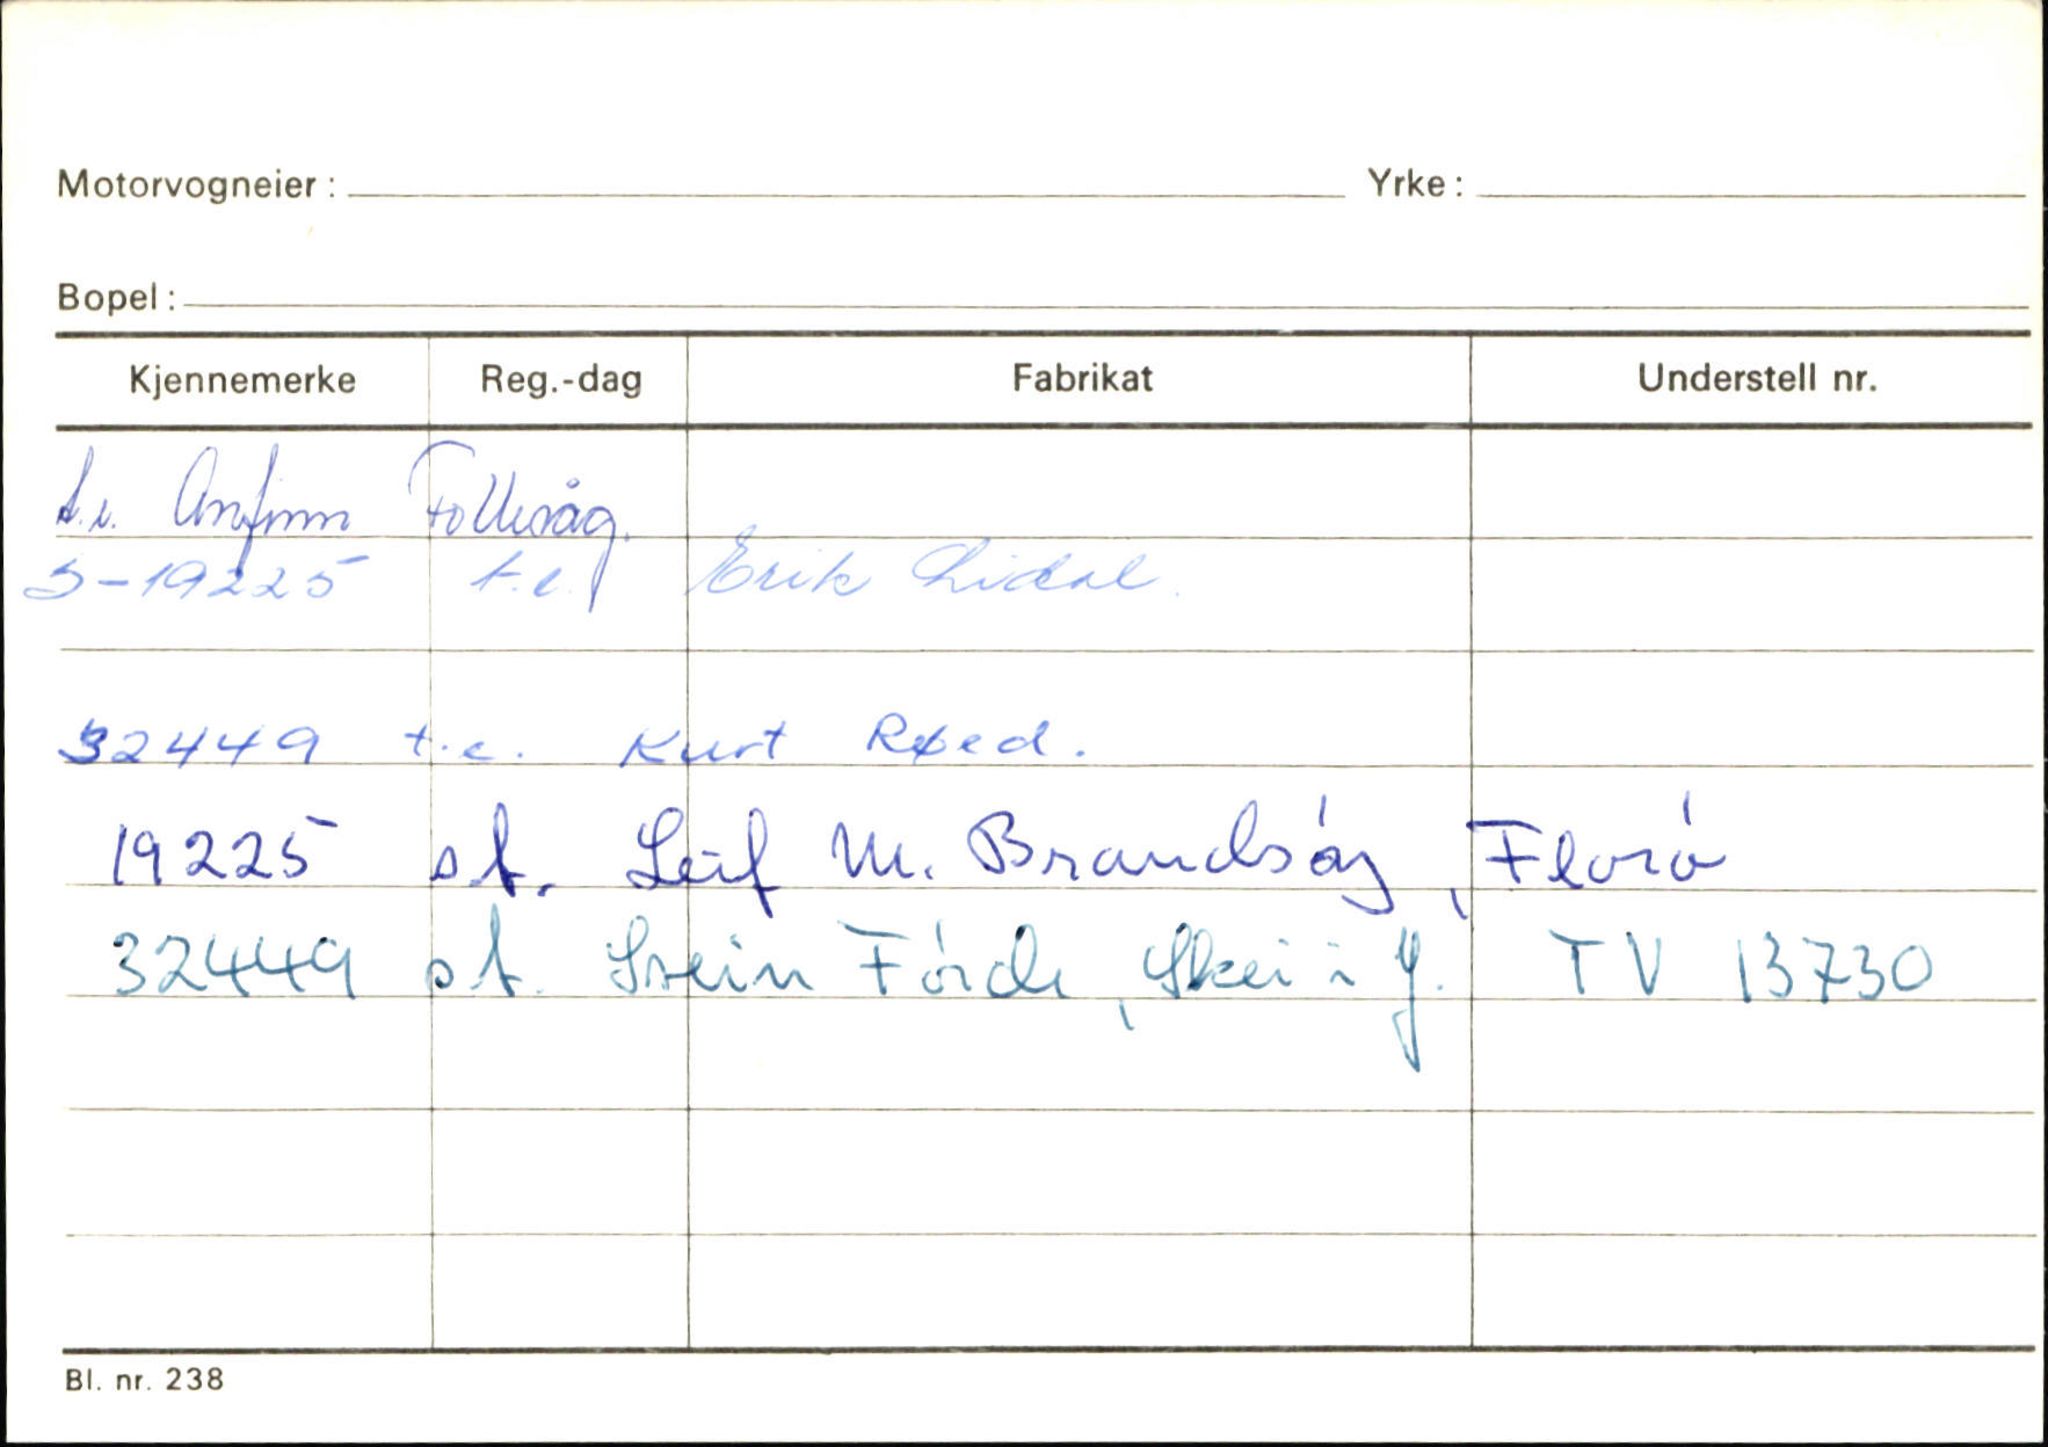 Motorvogneier: Yrke:
Bopel:
Kjennemerke Reg.-dag Fabrikat Understell nr.
t.e. Anfinn Follevåg.
S-19225 t.e. Erik Lidal.
32449 t.e. Kurt Røed.
19225 s.t. Leif M. Brandsøy, Florø
32449 s.t. Svein Førde, Skei i J. TV 13730
Bl. nr. 238